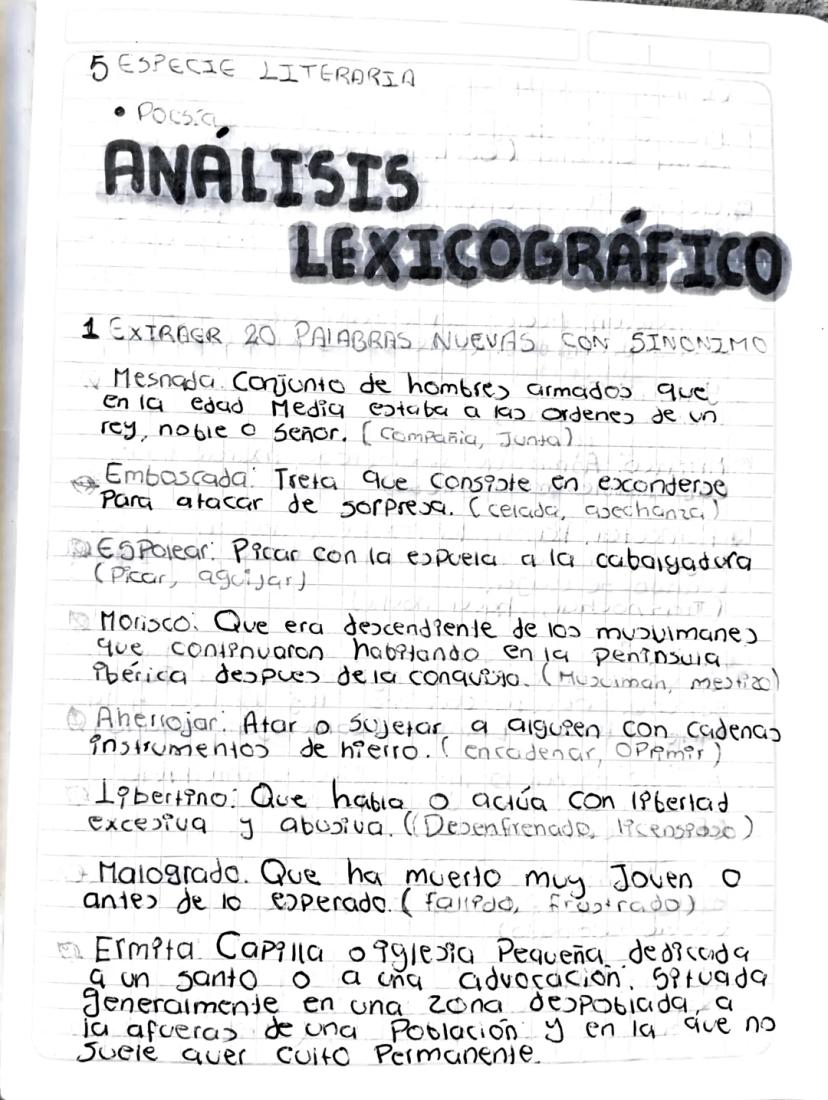 5 ESPECIE LITERARIA
• Poesía
ANÁLISIS
LEXICOGRÁFICO
1 EXTRAER 20 PALABRAS NUEVAS CON SINONIMO
Mesnada. Conjunto de hombres armados que
en la edad Media estaba a las ordenes de un
rey, noble o señor. (Compañia, Junta)
Emboscada: Treta que consiste en esconderse
Para atacar de sorpresa. (celada, asechanza)
Espolear: Picar con la espuela a la cabalgadura
(Picar, aguijar)
Morisco: Que era descendiente de los musulmanes
que continuaron habitando en la peninsula
ibérica despues de la conquista. (Musulman, mestizo)
Aherrojar: Atar o sujetar a alguien con cadenas
instrumentos de hierro. (encadenar, oprimir)
Libertino: Que habla o actúa con libertad
excesiva y abusiva. ((Desenfrenado, licensioso)
Malogrado. Que ha muerto muy Joven o
antes de lo esperado. (fallido, frustrado)
Ermita Capilla o iglesia Pequeña dedicada
a un santo o a una advocación, situada
generalmente en una zona despoblada, a
la afueras de una Población y en la que no
suele aver culto Permanente.